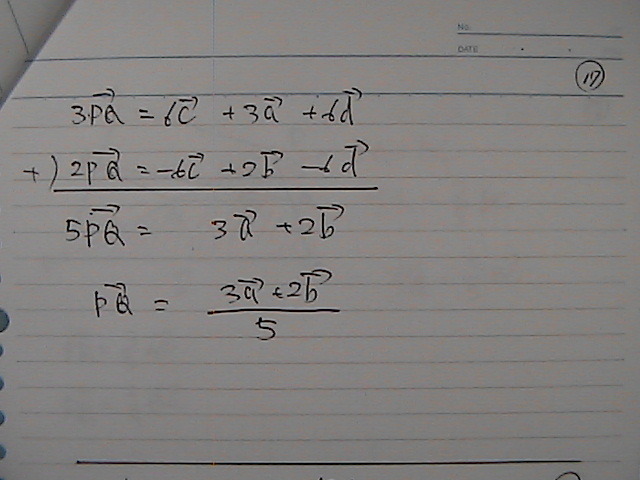 NO.
DATE
117
3PQ⃗ = 6c⃗ + 3a⃗ + 6d⃗
+) 2PQ⃗ = -6c⃗ + 2b⃗ - 6d⃗
5PQ⃗ = 3a⃗ + 2b⃗
PQ⃗ = (3a⃗ + 2b⃗) / 5